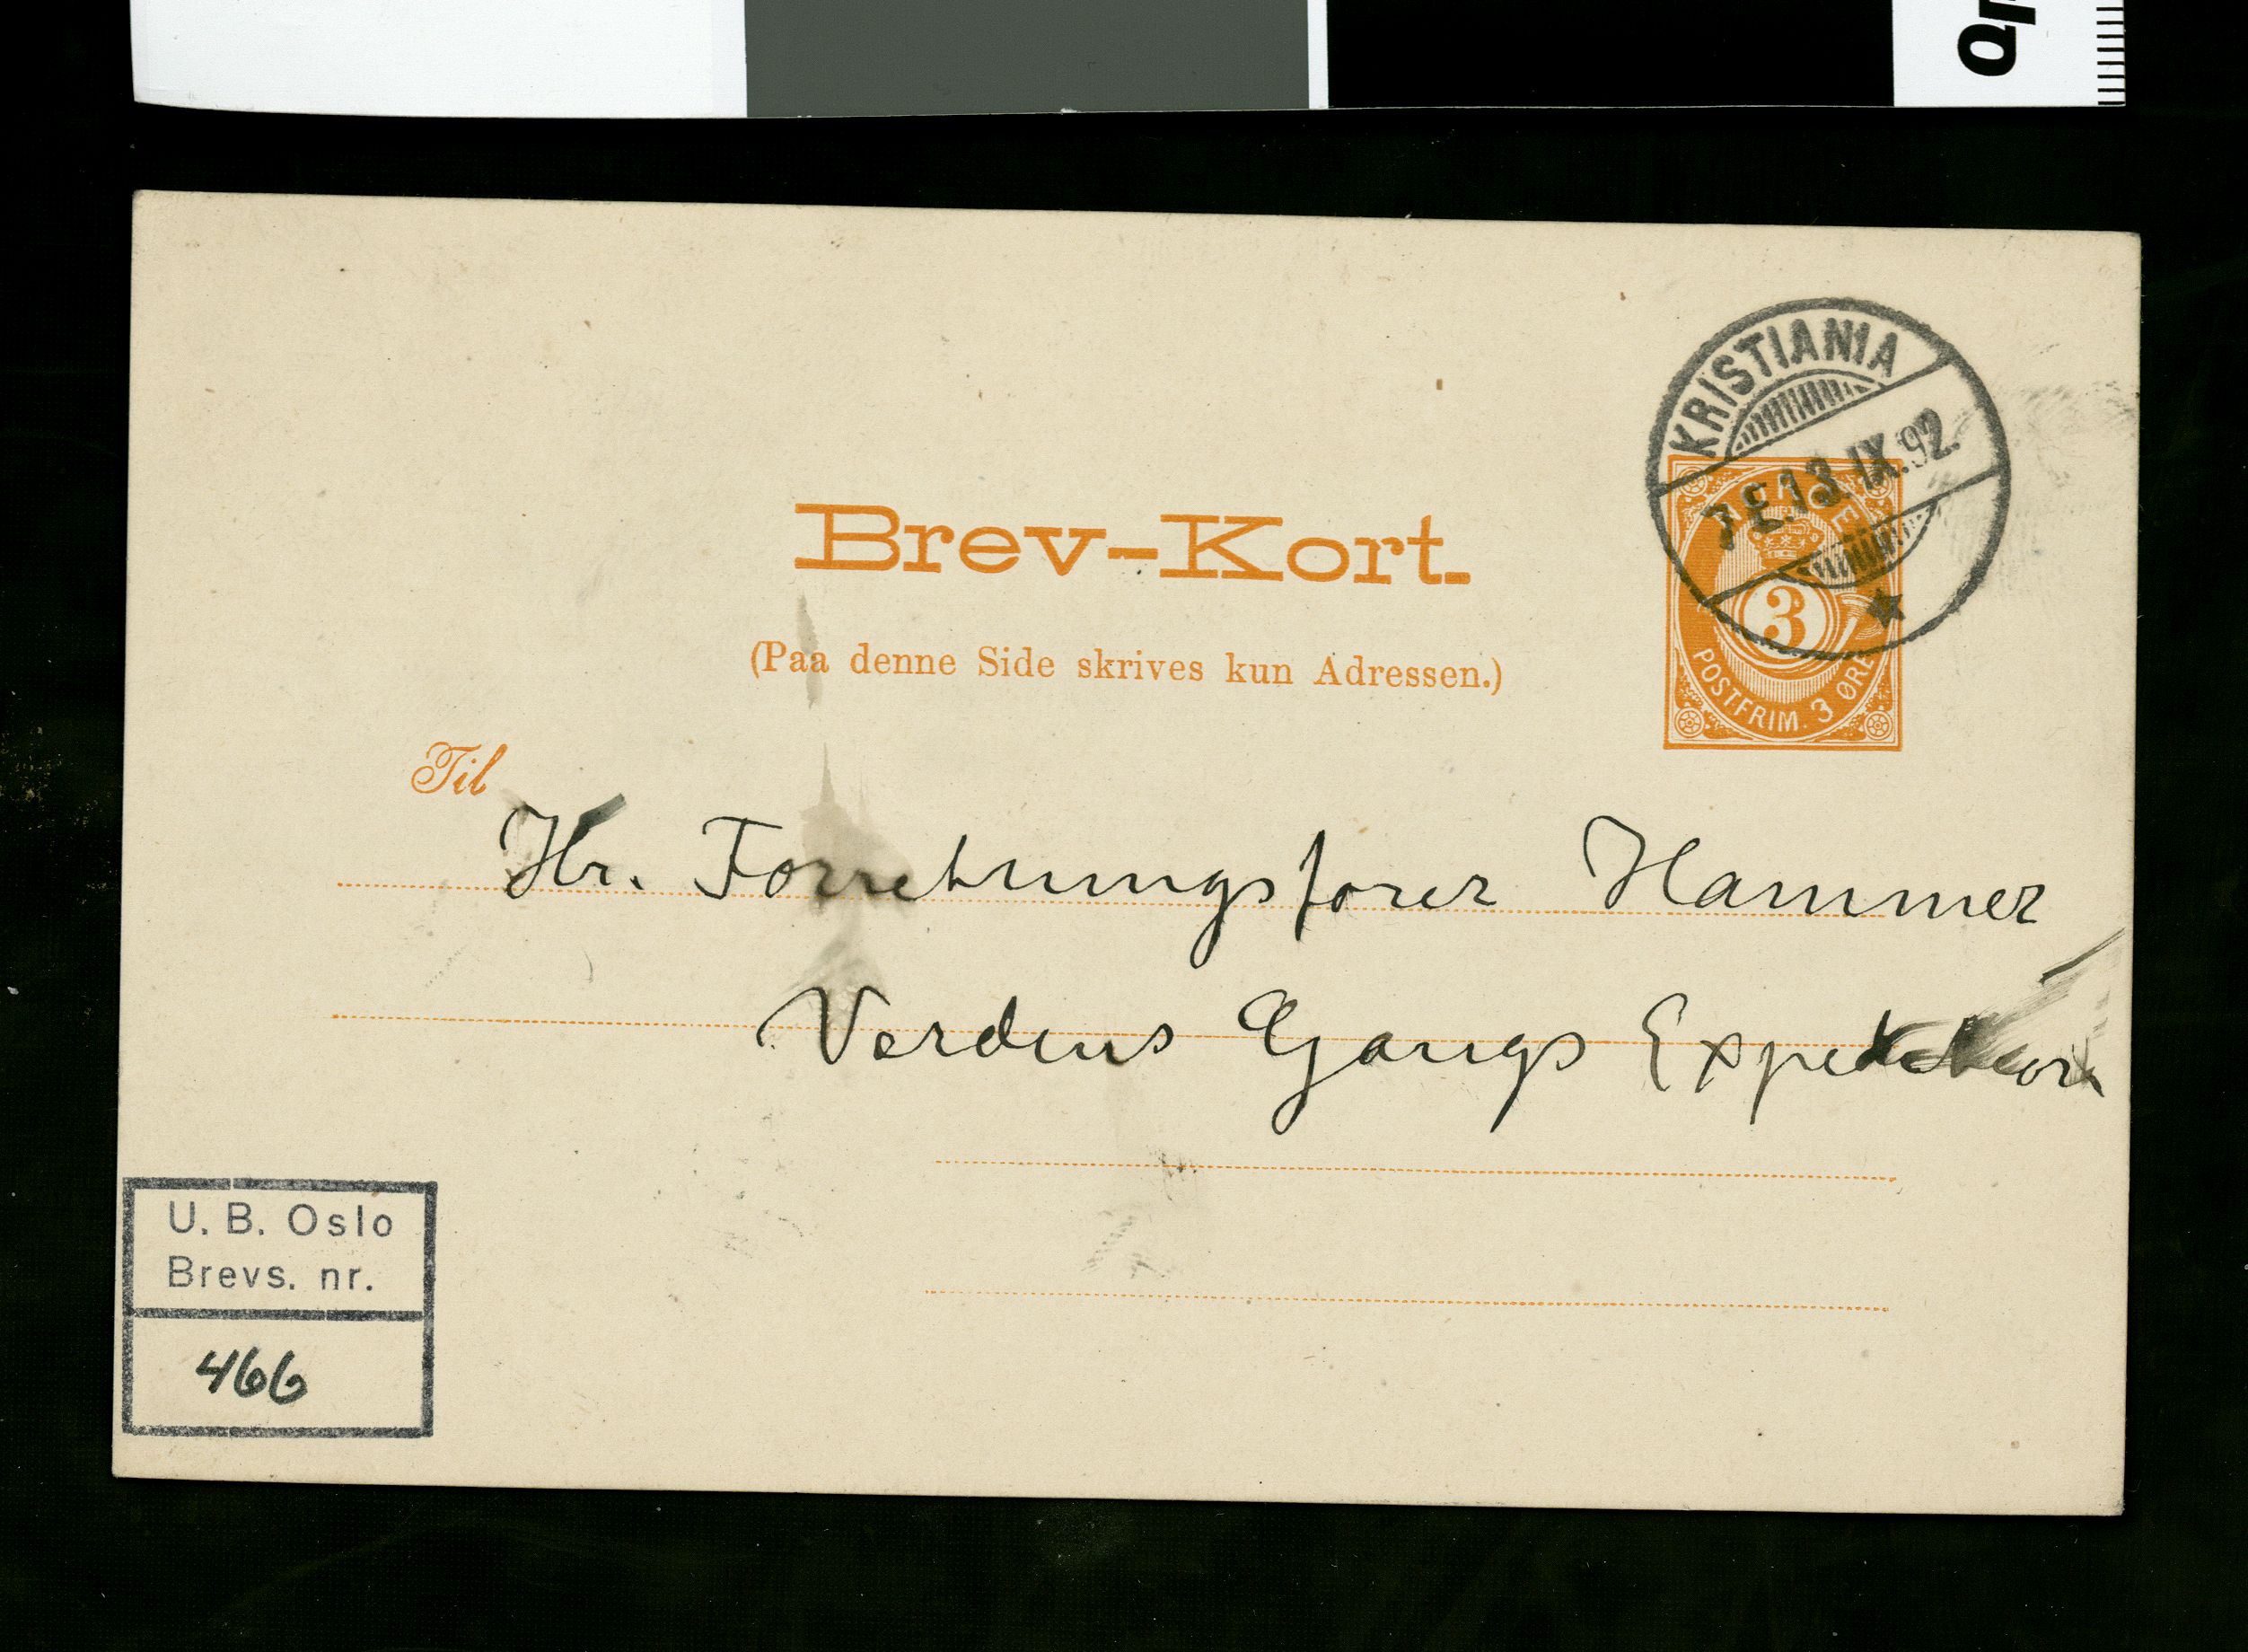 KRISTIANIA
7 E. 13. IX. 92.
NORGE
3
POSTFRIM. 3 ØRE
Brev-Kort.
(Paa denne Side skrives kun Adressen.)
Til
Hr. Forretningsfører Hammer
Verdens Gangs Expedition
U. B. Oslo
Brevs. nr.
466